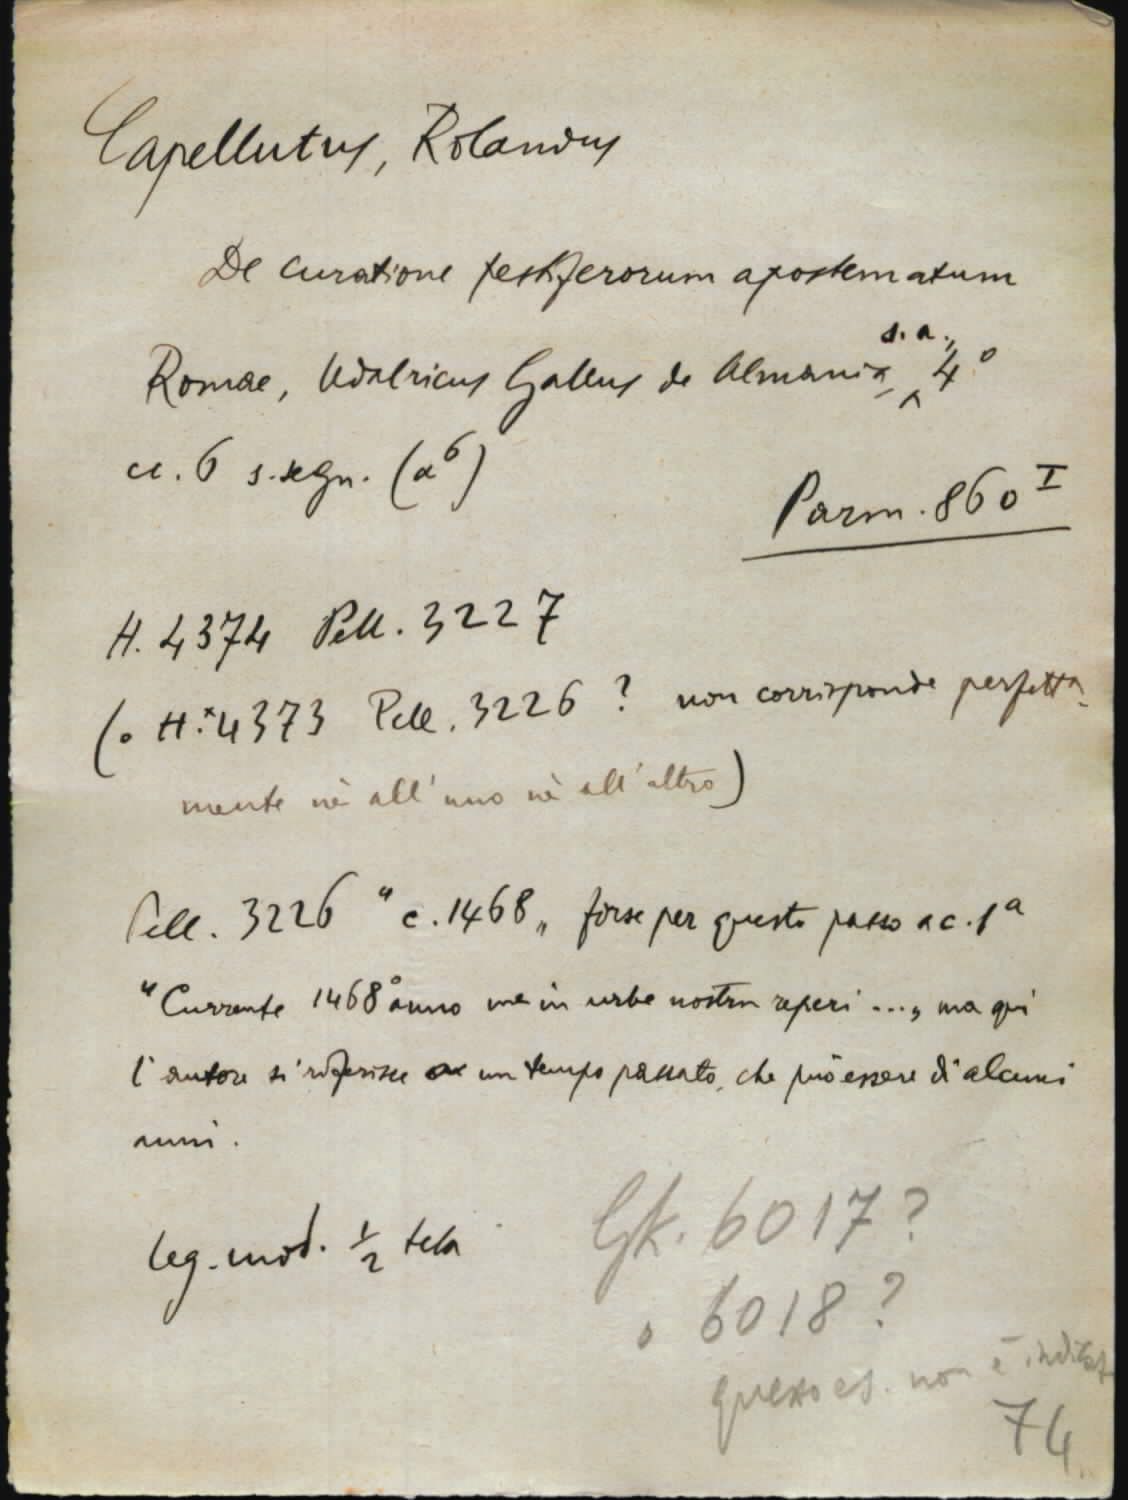 Capellutus, Rolandus
De curatione pestiferorum apostematum
s.a.,
Romae, Udalricus Gallus de Almania, 4°
cc. 6 s.segn. (a⁶)
Parm. 860 I
H. 4374 Pell. 3227
(o H.*4373 Pell. 3226 ? non corrisponde perfetta-
mente nè all'uno nè all'altro)
Pell. 3226 "c. 1468„ forse per questo passo a c. 1ª
"Currente 1468° anno me in urbe nostra reperi ...„ ma qui
l'autore si riferisce a un tempo passato, che può essere di alcuni
anni.
leg. mod. ½ tela
Gk. 6017 ?
o 6018 ?
questo es. non è indicat
74